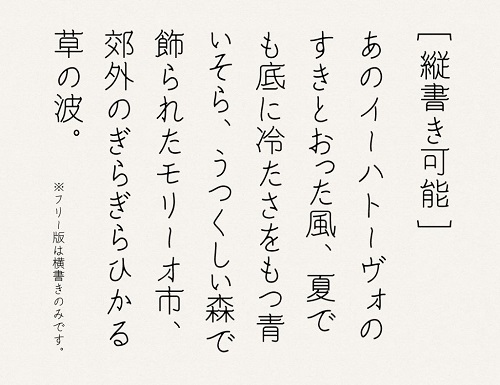 ［縦書き可能］
あのイーハトーヴォの
すきとおった風、夏で
も底に冷たさをもつ青
いそら、うつくしい森で
飾られたモリーオ市、
郊外のぎらぎらひかる
草の波。
※フリー版は横書きのみです。